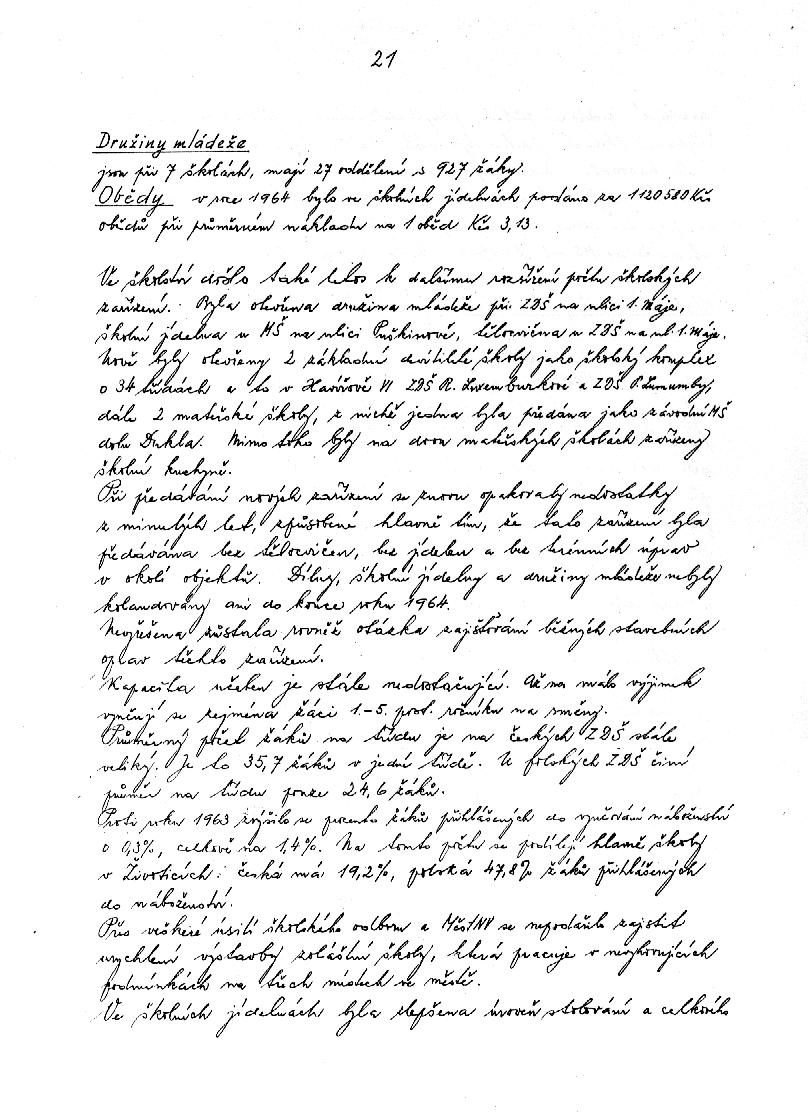 21
Družiny mládeže
jsou při 7 školách, mají 27 oddělení s 927 žáky.
Obědy v roce 1964 bylo ve školních jídelnách podáno za 1120580 Kčs
obědů při průměrném nákladu na 1 oběd Kčs 3,13.
Ve školství došlo také letos k dalšímu rozšíření počtu školských
zařízení. Byla otevřena družina mládeže při ZDŠ na ulici 1. Máje,
školní jídelna u MŠ na ulici Puškinově, tělocvična u ZDŠ na ul. 1. Máje.
Nově byly otevřeny 2 základní devítileté školy jako školský komplex
o 34 třídách a to v Havířově VI ZDŠ R. Luxemburkové a ZDŠ P. Lumumby,
dále 2 mateřské školy, z nichž jedna byla předána jako závodní MŠ
dolu Dukla. Mimo toho byly na dvou mateřských školách zařízeny
školní kuchyně.
Při předávání nových zařízení se znovu opakovaly nedostatky
z minulých let, způsobené hlavně tím, že tato zařízení byla
předávána bez tělocvičen, bez jídelen a bez terénních úprav
v okolí objektů. Dílny, školní jídelny a družiny mládeže nebyly
kolaudovány ani do konce roku 1964.
Nevyřešena zůstala rovněž otázka zajišťování běžných stavebních
oprav těchto zařízení.
Kapacita učeben je stále nedostačující. Až na málo výjimek
vyučují se zejména žáci 1.-5. post. ročníku na směny.
Průměrný počet žáků na třídu je na českých ZDŠ stále
veliký. Je to 35,7 žáků v jedné třídě. U polských ZDŠ činí
průměr na třídu pouze 24,6 žáků.
Proti roku 1963 zvýšilo se procento žáků přihlášených do vyučování náboženství
o 0,3%, celkově na 1,4%. Na tomto počtu se podílejí hlavně školy
v Životicích: česká má 19,2%, polská 47,8% žáků přihlášených
do náboženství.
Přes veškeré úsilí školského odboru a MěstNV se nepodařilo zajistit
urychlení výstavby zvláštní školy, která pracuje v nevyhovujících
podmínkách na třech místech ve městě.
Ve školních jídelnách byla zlepšena úroveň stolování a celkového